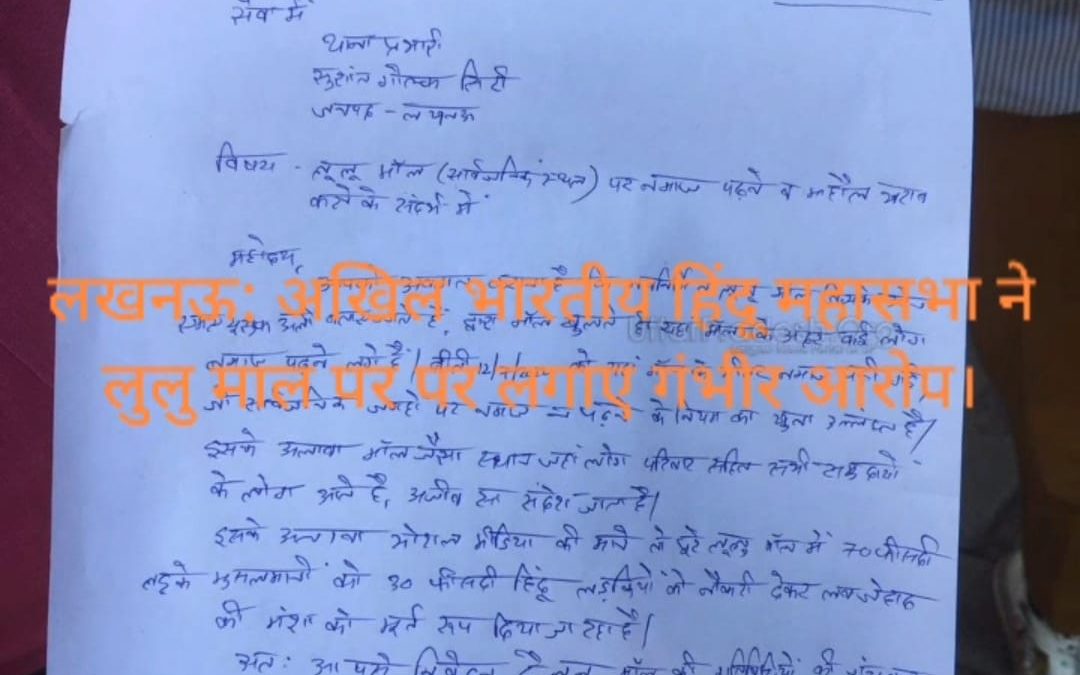 सेवा में
थाना प्रभारी
सुशांत गोल्फ सिटी
जनपद - लखनऊ
विषय - लूलू मॉल (सार्वजनिक स्थल) पर नमाज पढ़ने व माहौल खराब
करने के संदर्भ में
महोदय,
लखनऊ: अखिल भारतीय हिंदू महासभा ने
खुलते ही यहां मॉल के अन्दर कई लोग
नमाज पढ़ने लगे हैं।
लुलु माल पर पर लगाए गंभीर आरोप।
जो सार्वजनिक जगहों पर नमाज न पढ़ने के नियम का खुला उल्लंघन है।
इसके अलावा मॉल जैसा स्थान जहां लोग परिवार सहित सभी समुदायों
के लोग आते हैं, अजीब सा संदेश जाता है।
इसके अलावा सोशल मीडिया की माने तो पूरे लूलू मॉल में 70 फीसदी
लड़के मुसलमानों को 30 फीसदी हिंदू लड़कियों को नौकरी देकर लव जेहाद
की मंशा को मूर्त रूप दिया जा रहा है।
अतः आपसे निवेदन है मॉल की की